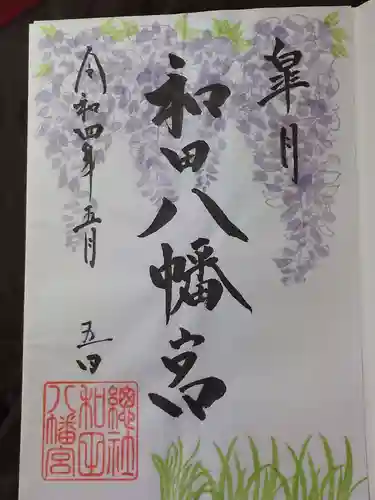 皐月
和田八幡宮
令和四年五月
五日
總社
和田
八幡宮